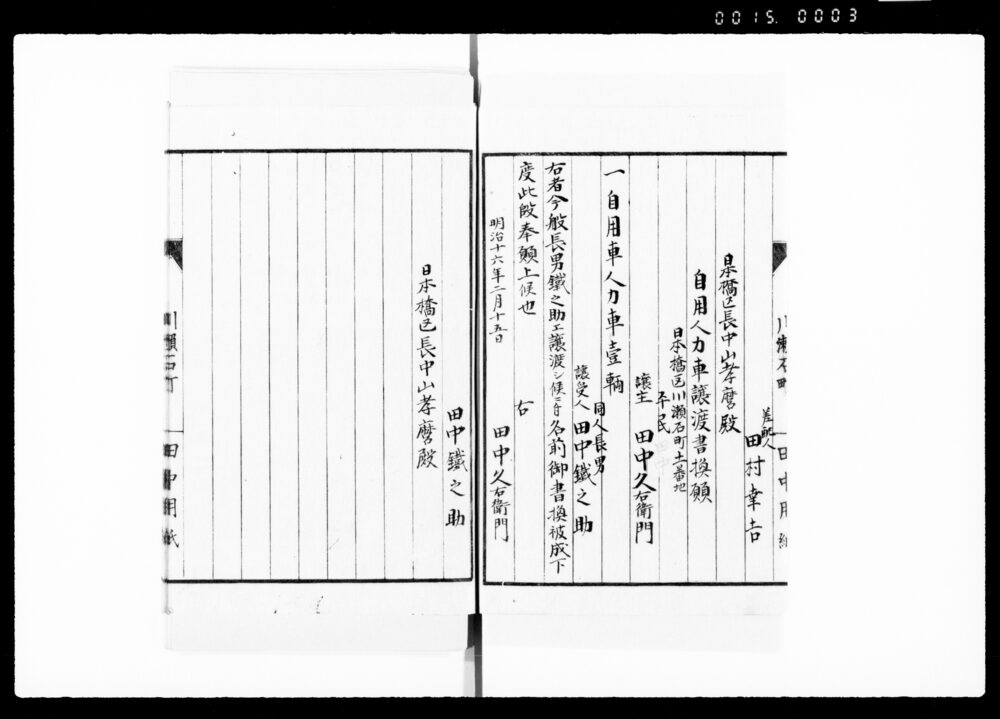 0015. 0003
川瀬石町 田中用紙
差配人
田村幸吉
日本橋区長中山孝麿殿
自用人力車譲渡書換願
日本橋区川瀬石町十一番地
平民
譲主 田中久右衛門
一自用車人力車壹輛
同人長男
譲受人 田中鐵之助
右者今般長男鐵之助エ譲渡シ候ニ付名前御書換被成下
度此段奉願上候也
右
明治十六年二月十五日
田中久右衛門
田中鐵之助
日本橋区長中山孝麿殿
川瀬石町 田中用紙